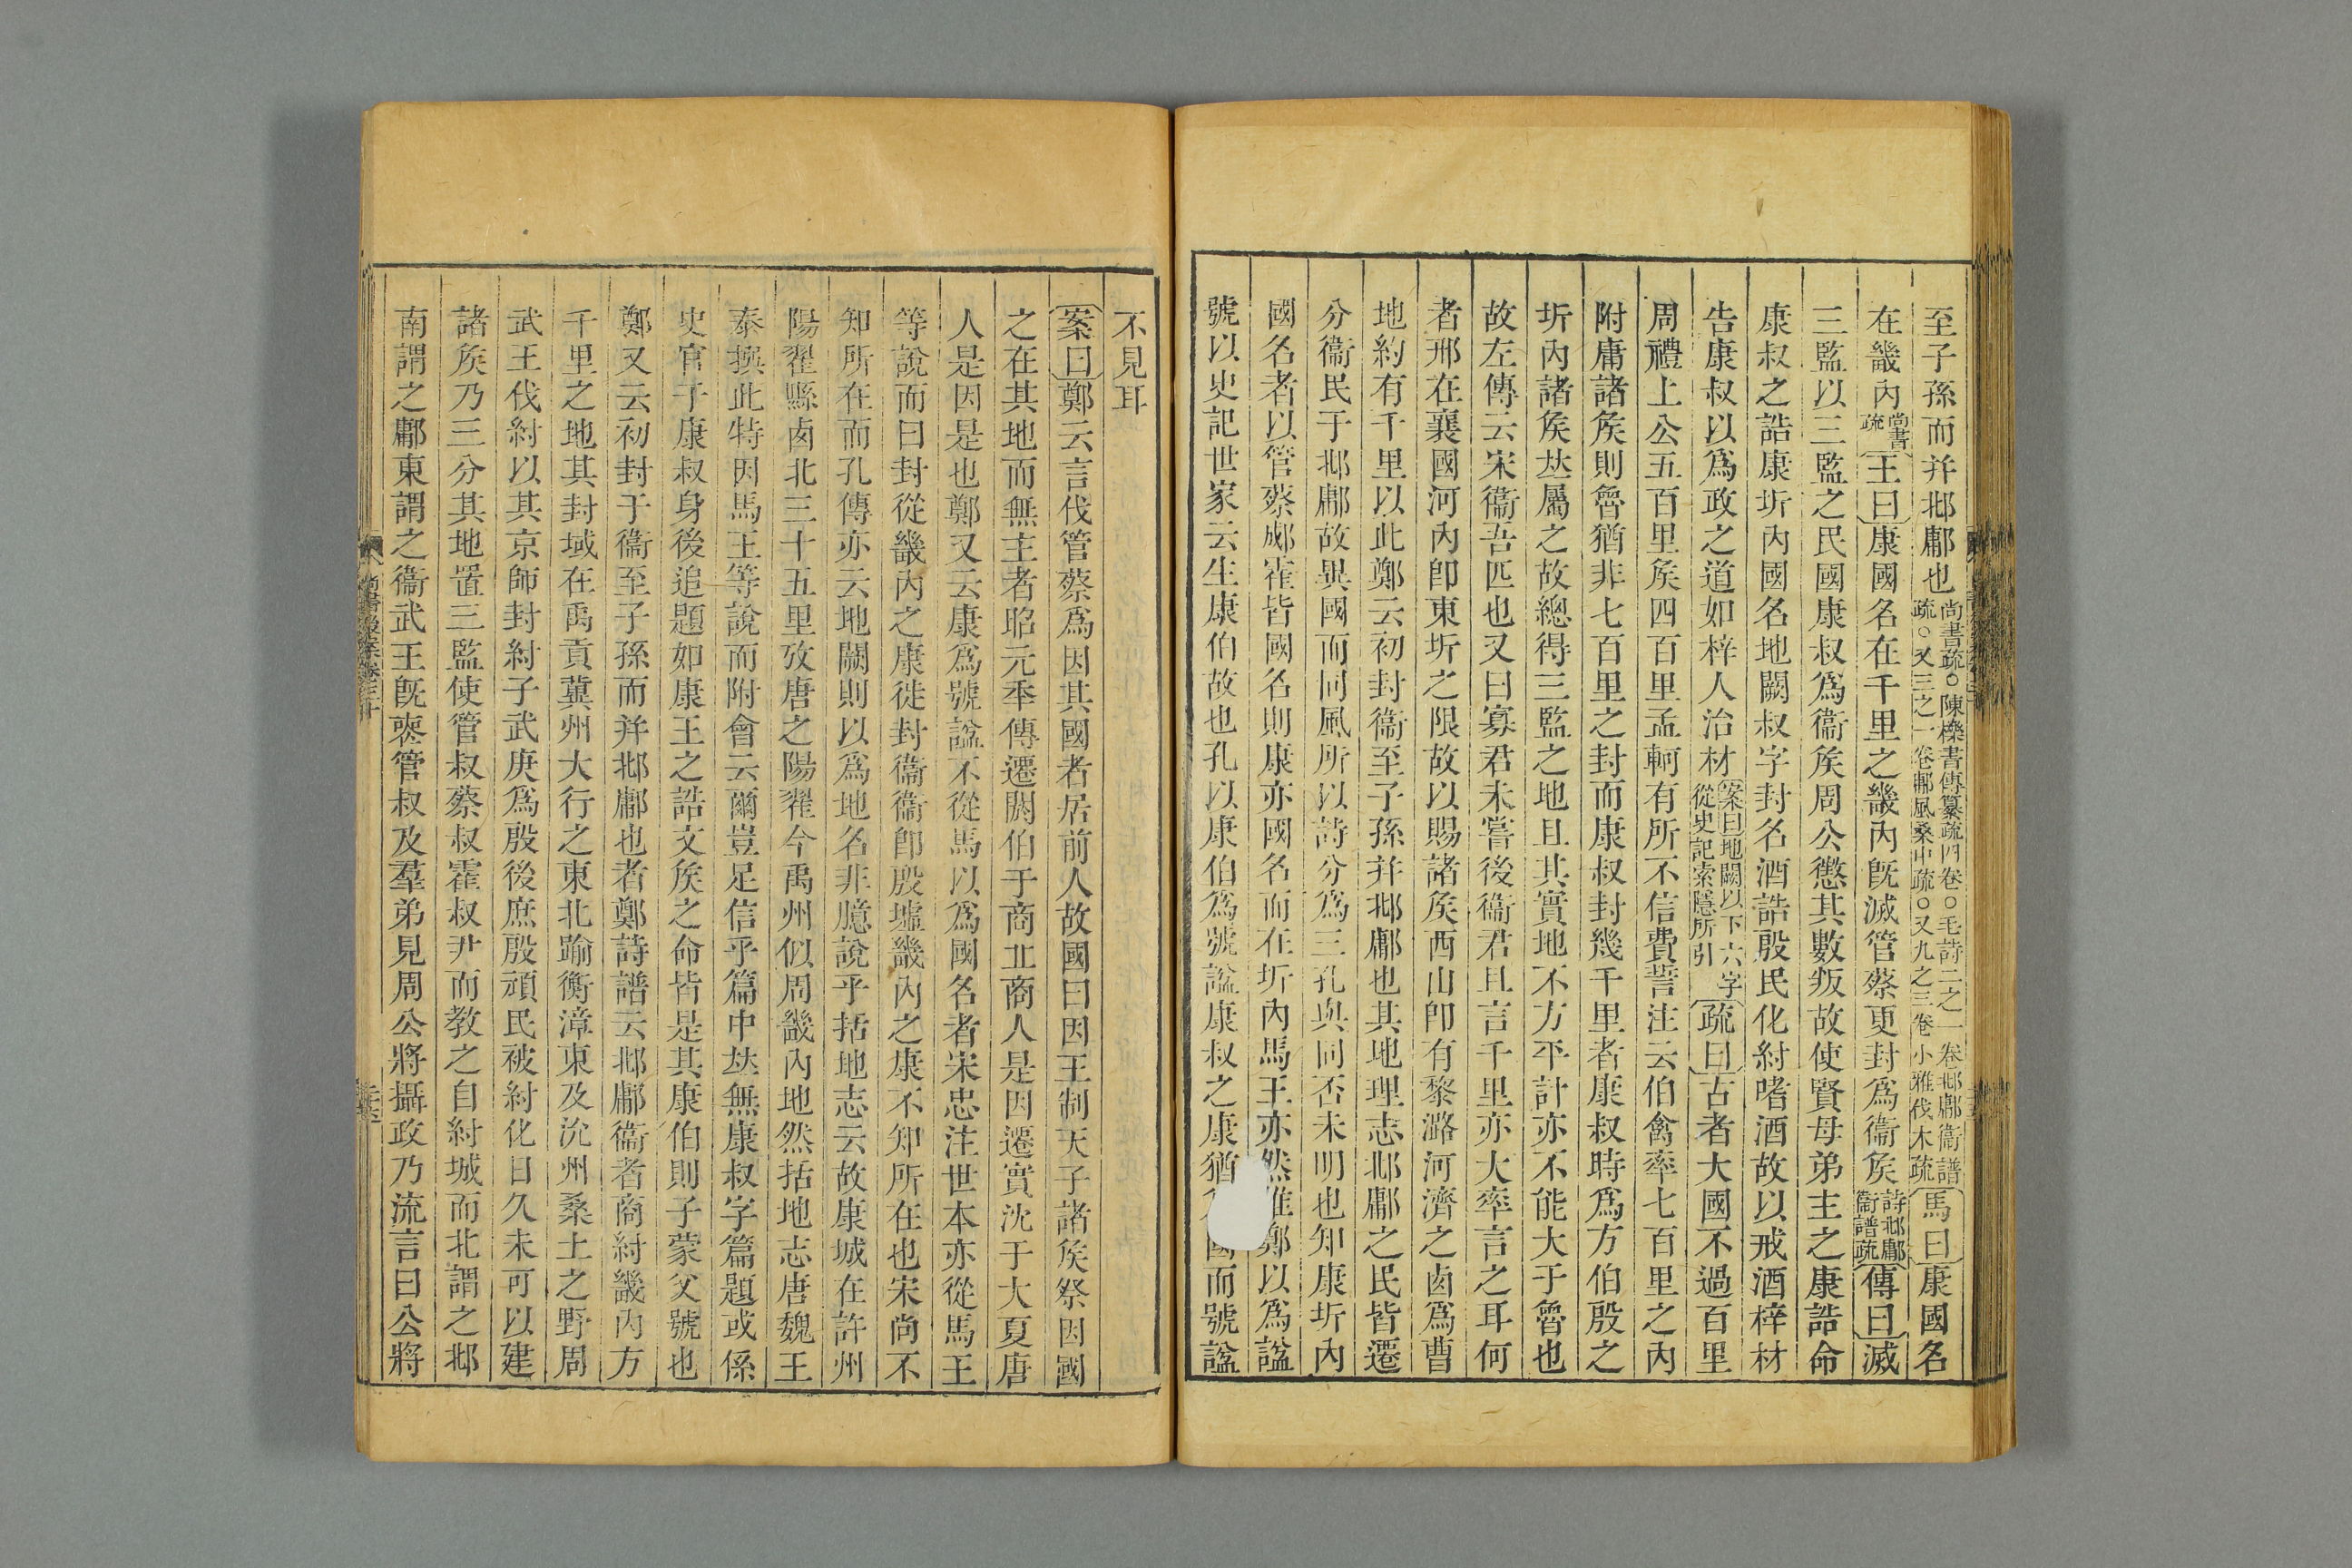 至子孫而并邶鄘也尚書疏○陳櫟書傳纂疏四卷○毛詩二之一卷邶鄘衞譜疏○又三之一卷鄘風桑中疏○又九之三卷小雅伐木疏馬曰康國名
在畿內尚書疏王曰康國名在千里之畿內旣滅管蔡更封爲衞矦詩邶鄘衞譜疏傳曰滅
三監以三監之民國康叔爲衞矦周公懲其數叛故使賢母弟主之康誥命
康叔之誥康圻內國名地闕叔字封名酒誥殷民化紂嗜酒故以戒酒梓材
告康叔以爲政之道如梓人治材案曰地闕以下六字從史記索隱所引疏曰古者大國不過百里
周禮上公五百里矦四百里孟軻有所不信費誓注云伯禽率七百里之內
附庸諸矦則魯猶非七百里之封而康叔封幾千里者康叔時爲方伯殷之
圻內諸矦𠀤屬之故總得三監之地且其實地不方平計亦不能大于魯也
故左傳云宋衞吾匹也又曰寡君未嘗後衞君且言千里亦大率言之耳何
者邢在襄國河內卽東圻之限故以賜諸矦西山卽有黎潞河濟之鹵爲曹
地約有千里以此鄭云初封衞至子孫并邶鄘也其地理志邶鄘之民皆遷
分衞民于邶鄘故異國而同風所以詩分爲三孔與同否未明也知康圻內
國名者以管蔡郕霍皆國名則康亦國名而在圻內馬王亦然惟鄭以爲諡
號以史記世家云生康伯故也孔以康伯爲號諡康叔之康猶國而號諡
不見耳
案曰鄭云言伐管蔡爲因其國者居前人故國曰因王制天子諸矦祭因國
之在其地而無主者昭元年傳遷閼伯于商丘商人是因遷實沈于大夏唐
人是因是也鄭又云康爲號諡不從馬以爲國名者宋忠注世本亦從馬王
等說而曰封從畿內之康徙封衞衞卽殷墟畿內之康不知所在也宋尙不
知所在而孔傳亦云地闕則以爲地名非臆說乎括地志云故康城在許州
陽翟縣鹵北三十五里攷唐之陽翟今禹州似周畿內地然括地志唐魏王
泰撰此特因馬王等說而附會云爾豈足信乎篇中𠀤無康叔字篇題或係
史官于康叔身後追題如康王之誥文矦之命皆是其康伯則子蒙父號也
鄭又云初封于衞至子孫而并邶鄘也者鄭詩譜云邶鄘衞者商紂畿內方
千里之地其封域在禹貢冀州大行之東北踰衡漳東及沇州桑土之野周
武王伐紂以其京師封紂子武庚爲殷後庶殷頑民被紂化日久未可以建
諸矦乃三分其地置三監使管叔蔡叔霍叔尹而教之自紂城而北謂之邶
南謂之鄘東謂之衞武王旣喪管叔及羣弟見周公將攝政乃流言曰公將